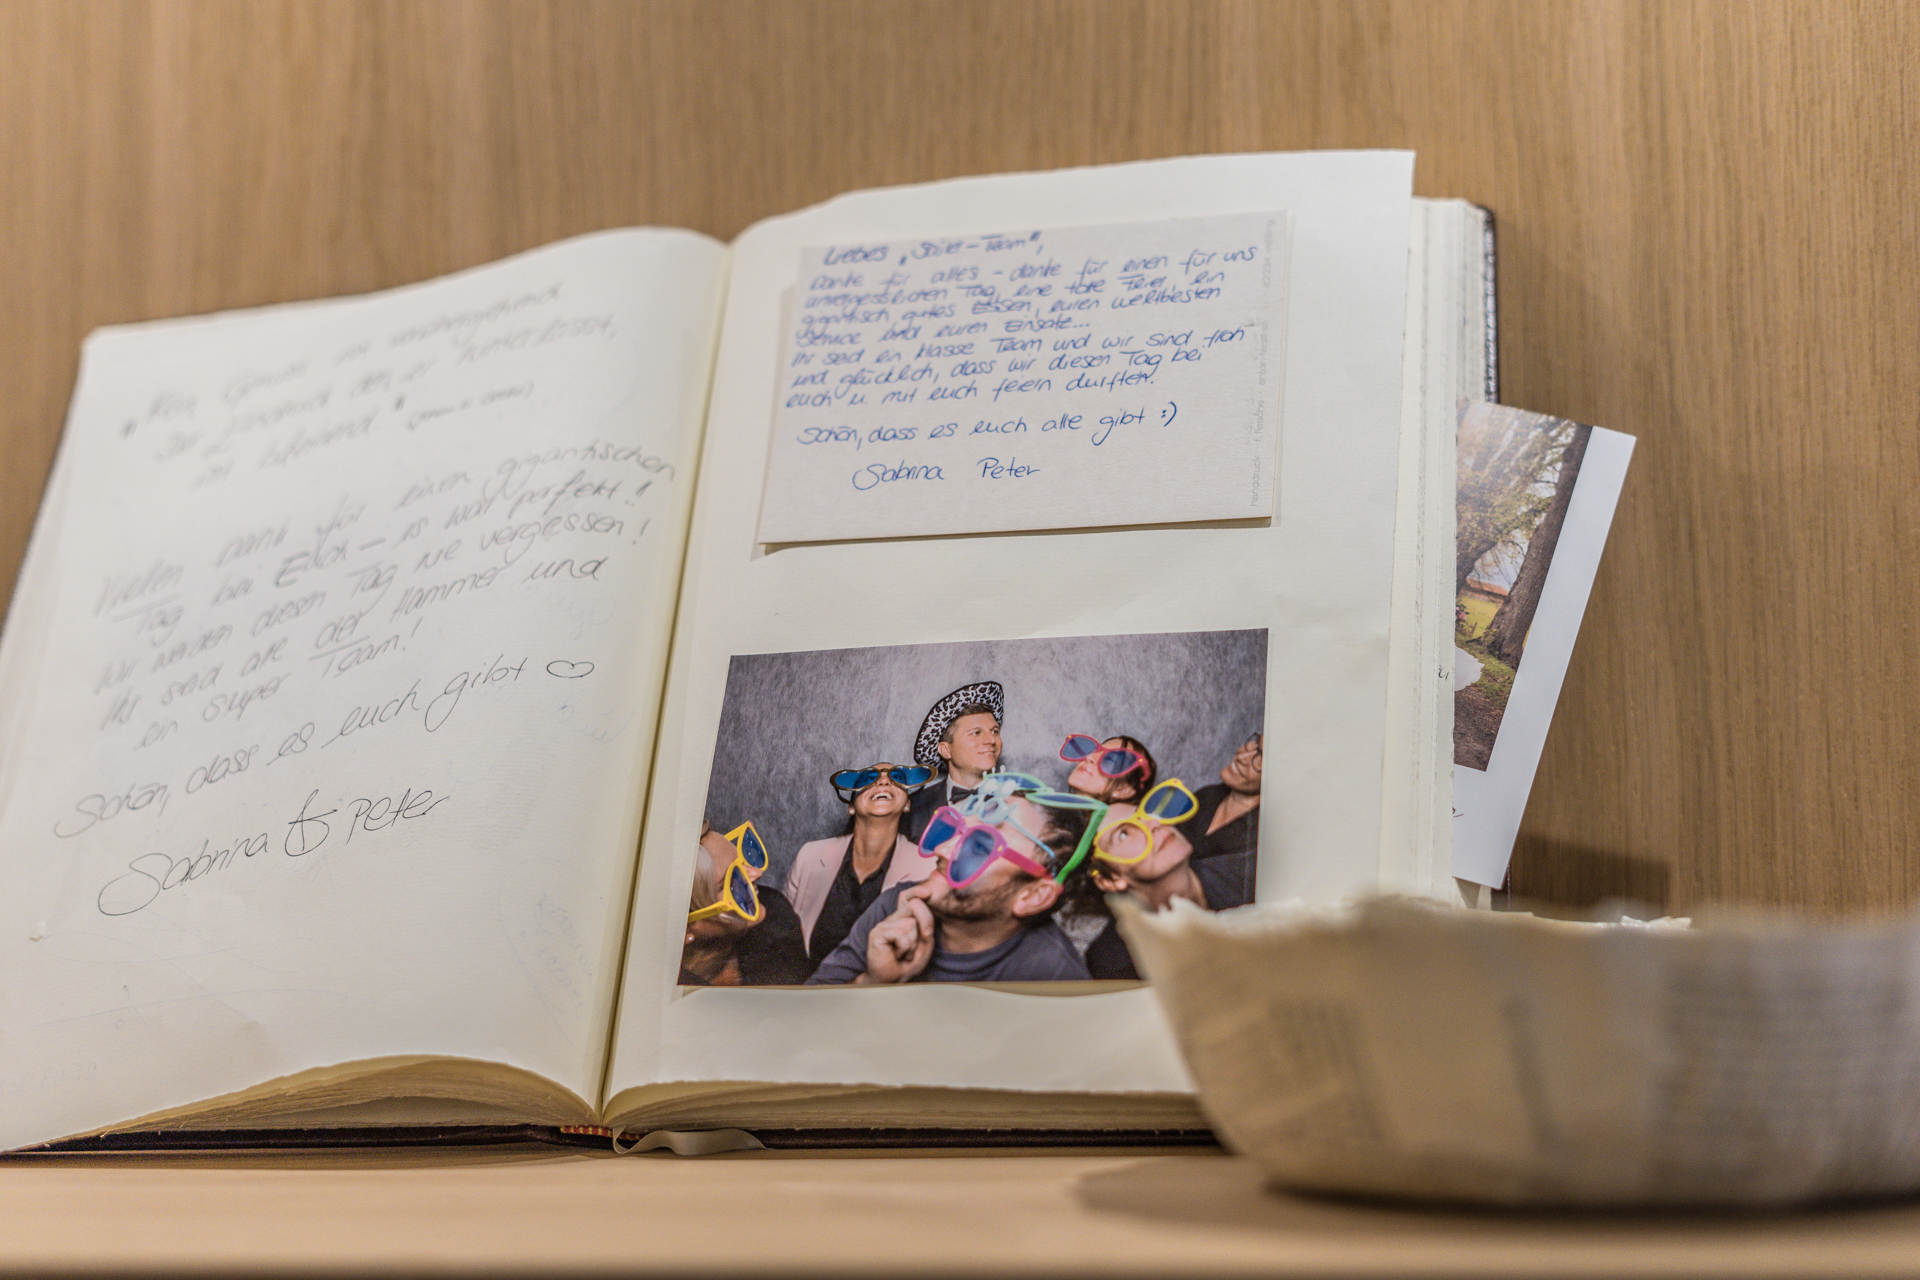 „Kein Genuss ist vorübergehend,
der Eindruck den er hinterlässt,
ist bleibend"
Vielen Dank für einen gigantischen
Tag bei Euch – es war perfekt!!
Wir werden diesen Tag nie vergessen!
Ihr seid alle der Hammer und
ein super Team!
Schön, dass es euch gibt ♡
Sabrina & Peter
Liebes
Danke für alles – danke für einen für uns
unvergesslichen Tag, eine tolle Feier, ein
gigantisch gutes Essen, euren weltbesten
Service und euren Einsatz...
Ihr seid ein klasse Team und wir sind froh
und glücklich, dass wir diesen Tag bei
euch u. mit euch feiern durften.
Schön, dass es euch alle gibt :)
Sabrina Peter
handdruck